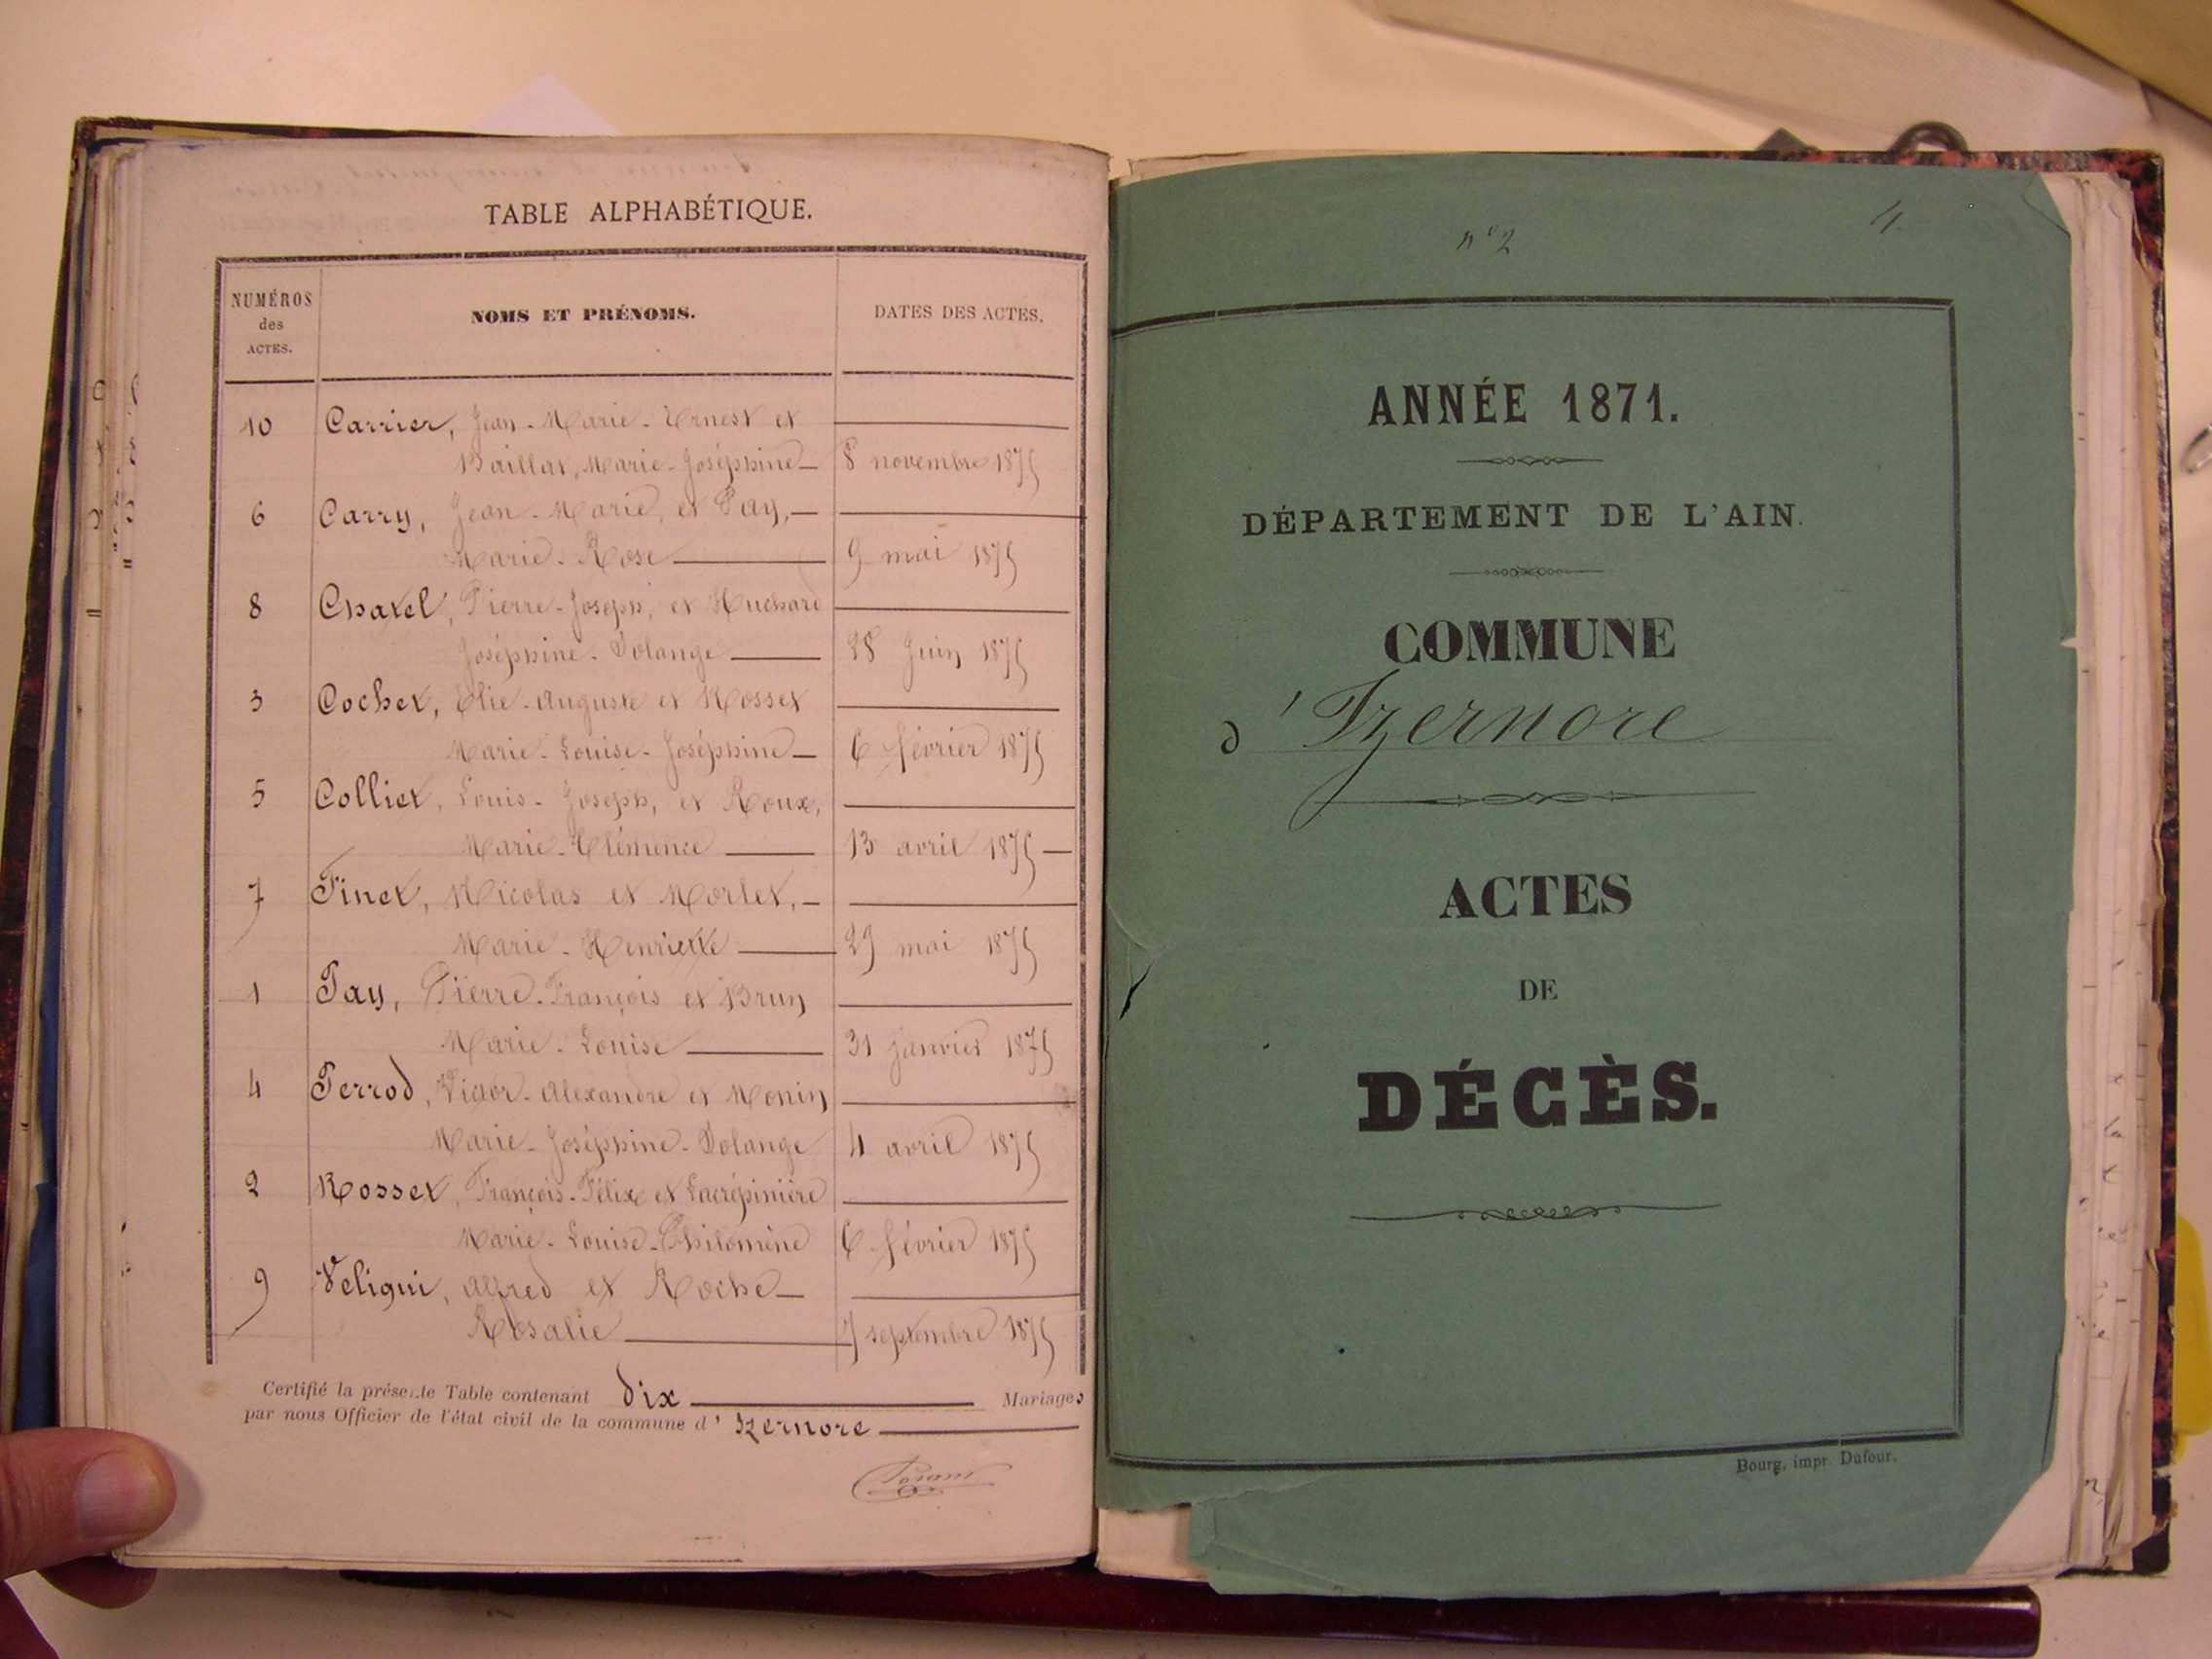 TABLE ALPHABÉTIQUE.
NUMÉROS
des
ACTES.
NOMS ET PRÉNOMS.
DATES DES ACTES.
10 Carrier, Jean-Marie-Ernest et
Baillat, Marie-Joséphine 8 novembre 1875
6 Carry, Jean-Marie, et Pay,
Marie-Rose 9 mai 1875
8 Chatel, Pierre-Joseph, et Huchard
Joséphine-Solange 28 Juin 1875
3 Cochet, Elie-Auguste et Rosset
Marie-Louise-Joséphine 6 février 1875
5 Colliet, Louis-Joseph, et Roux,
Marie-Clémence 13 avril 1875
7 Finet, Nicolas et Morlet,
Marie-Henriette 29 mai 1875
1 Pay, Pierre-François et Brun
Marie-Louise 31 janvier 1875
4 Perrod, Victor-Alexandre et Monin
Marie-Joséphine-Solange 4 avril 1875
2 Rosset, François-Félix et Lacrépinière
Marie-Louise-Philomène 6 février 1875
9 Veliqui, Alfred et Roche
Rosalie 7 septembre 1875
Certifié la présente Table contenant dix Mariages
par nous Officier de l'état civil de la commune d'Izernore
n° 2
4
ANNÉE 1871.
DÉPARTEMENT DE L'AIN.
COMMUNE
d'Izernore
ACTES
DE
DÉCÈS.
Bourg, impr. Dufour.